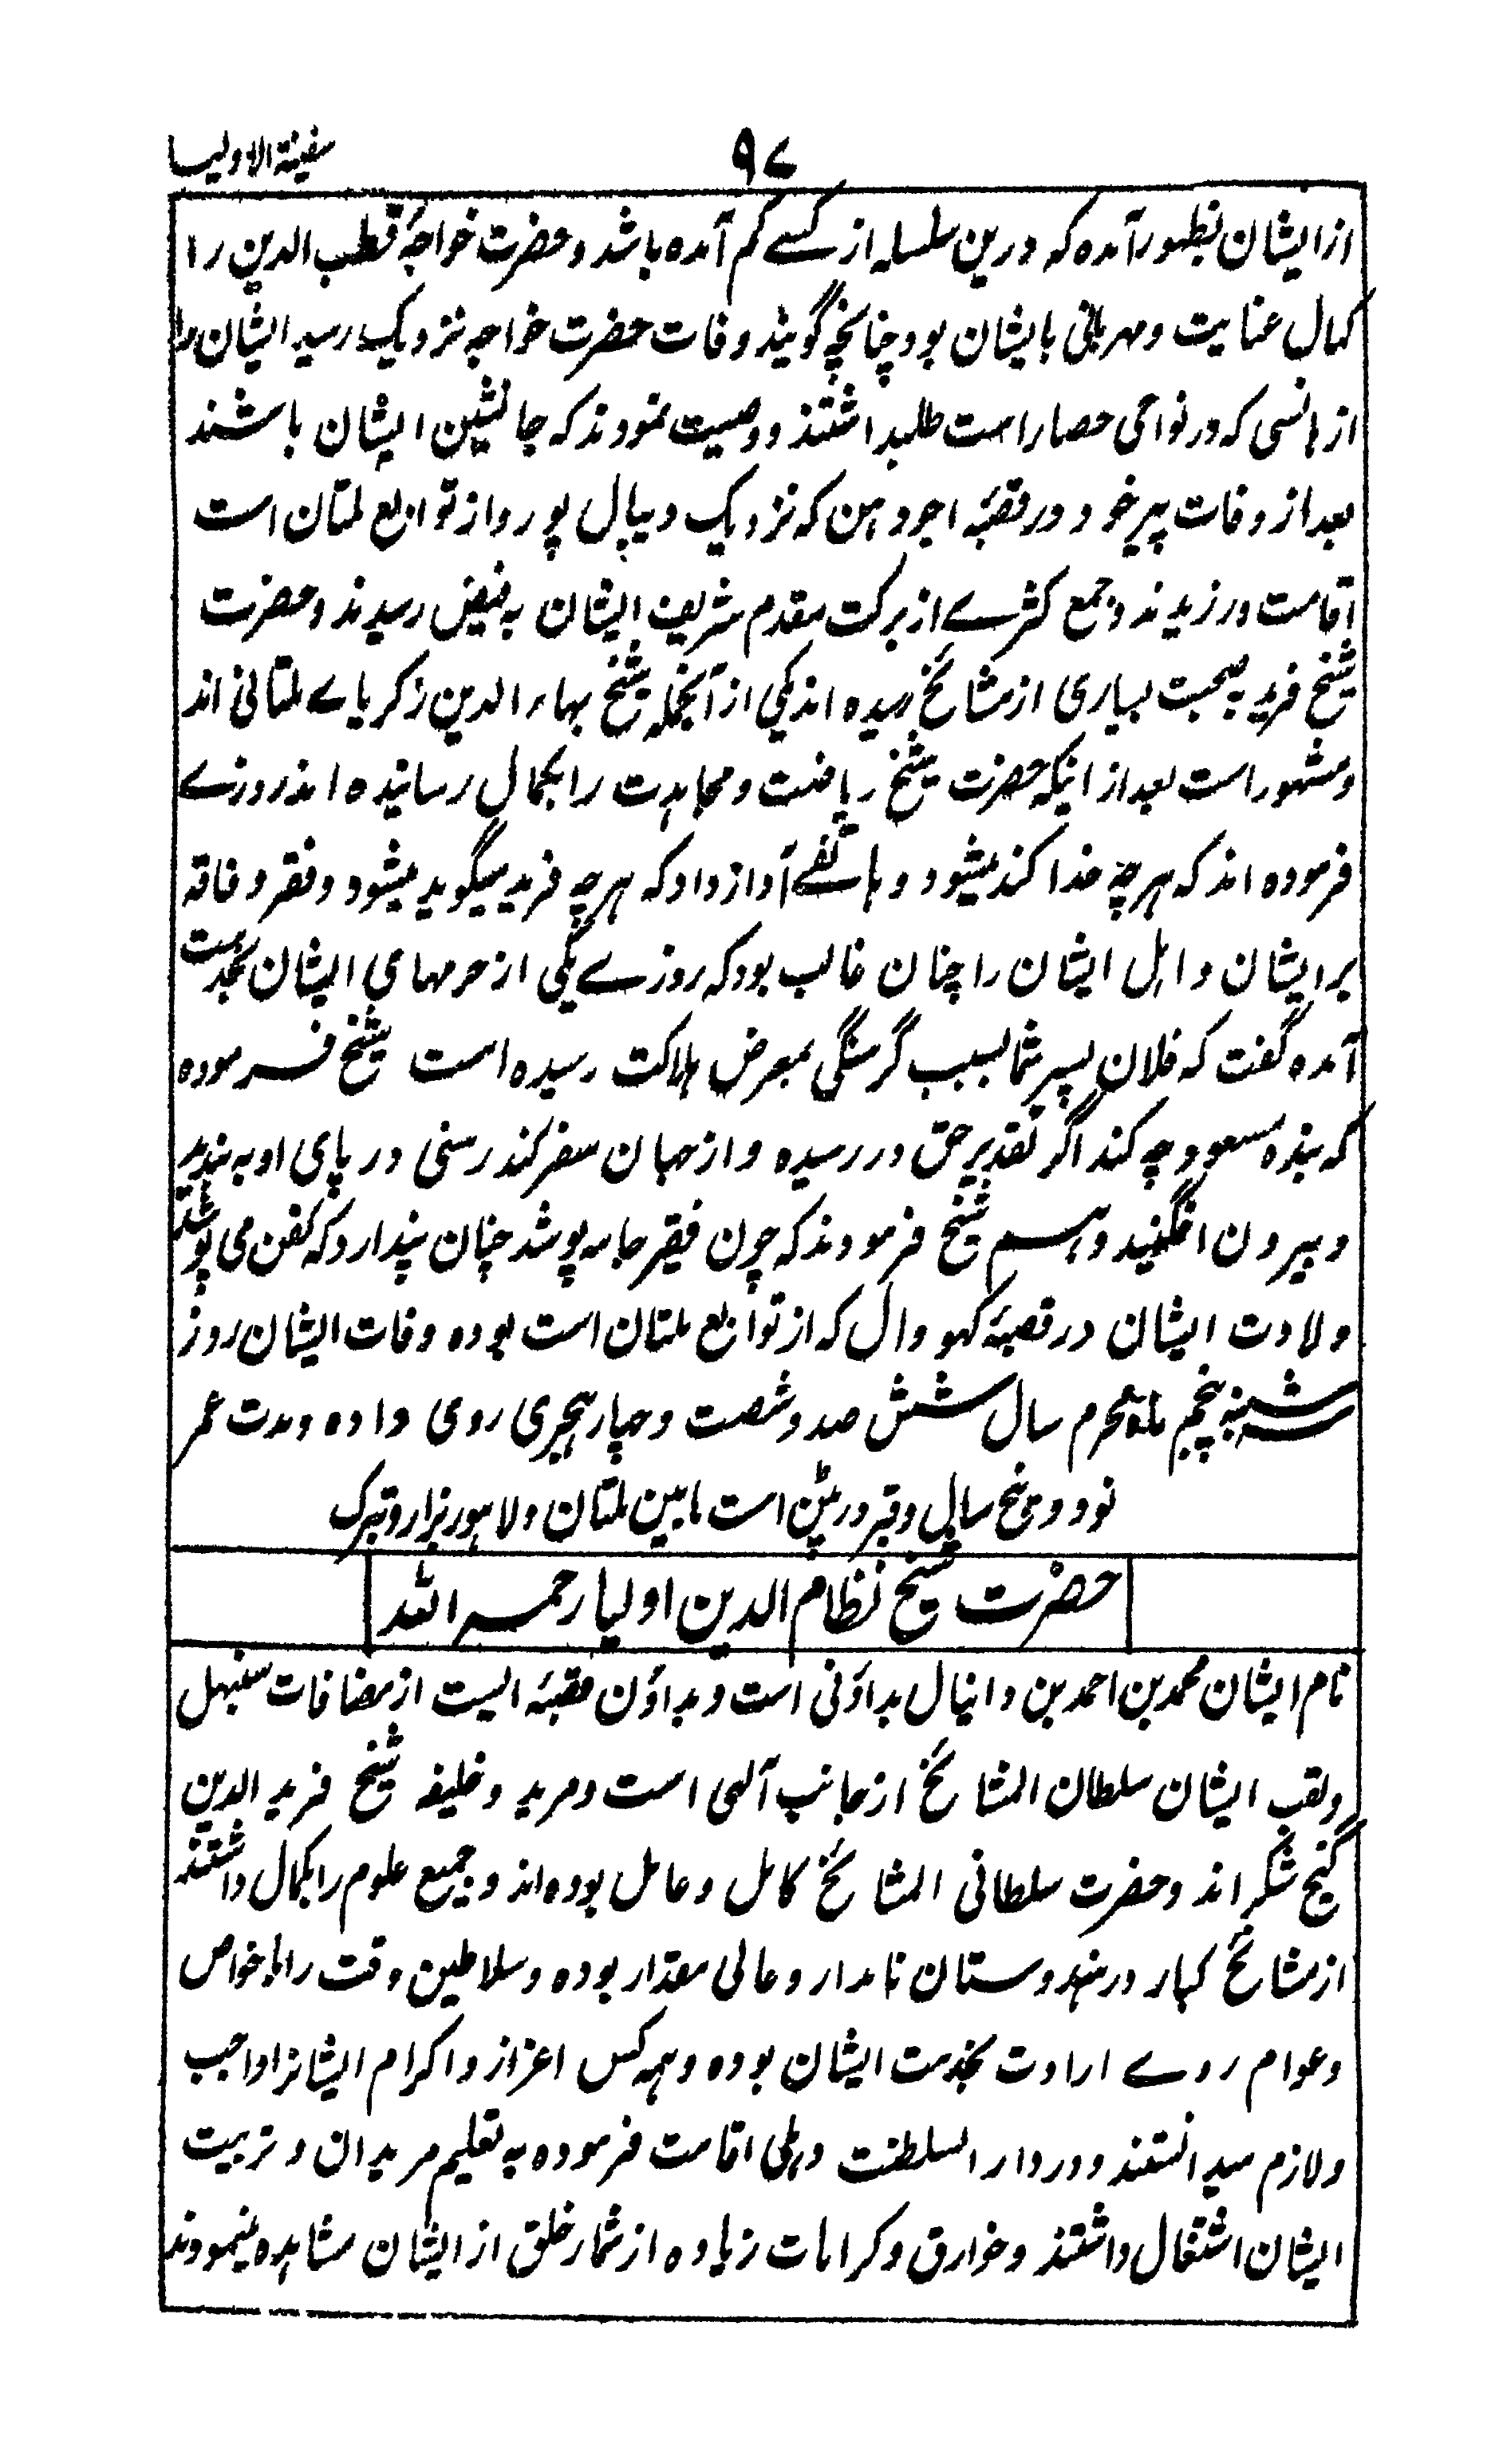 سفینة الاولیا
۹۷
از ایشان بظهور آمده که درین سلسله از کسے کم آمده باشد و حضرت خواجهٔ قطب الدین را
کمال عنایت و مهربانی بایشان بود چنانچه گویند وفات حضرت خواجه نزدیک رسید ایشان را
از هانسی که در نواحی حصار است طلبداشتند و وصیت نمودند که جانشین ایشان باشند
بعد از وفات پیر خود در قصبهٔ اجودهن که نزدیک دیپال پور و از توابع ملتان است
اقامت ورزیدند و جمع کثرے از برکت مقدم شریف ایشان به فیض رسیدند و حضرت
شیخ فرید به صحبت بسیاری از مشائخ رسیده اند یکی از آنجمله شیخ بهاء الدین زکریاے ملتانی اند
و مشهور است بعد از اینکه حضرت شیخ ریاضت و مجاهدت را بکمال رسانیده اند روزے
فرموده اند که هرچه خدا کند میشود و هاتفے آواز داد که هرچه فرید میگوید میشود و فقر و فاقه
بر ایشان و اهل ایشان را چنان غالب بود که روزے یکی از حرمهای ایشان بخدمت
آمده گفت که فلان پسر شما بسبب گرسنگی بمعرض هلاکت رسیده است شیخ فرموده
که بنده مسعود چه کند اگر تقدیر حق در رسیده و از جهان سفر کند رسنی در پای او به بندید
و بیرون افگنید و هم شیخ فرمودند که چون فقیر جامه پوشد چنان پندارد که کفن می پوشد
ولادت ایشان در قصبهٔ کهووال که از توابع ملتان است بوده وفات ایشان روز
سه شنبه پنجم ماه محرم سال شش صد و شصت و چهار هجری روی داده و مدت عمر
نود و پنج سال و قبر در پٹن است مابین ملتان و لاهور یزار و یتبرک
حضرت شیخ نظام الدین اولیا رحمه الله
نام ایشان محمد بن احمد بن دانیال بداؤنی است و بداؤن قصبهٔ ایست از مضافات سنبهل
و لقب ایشان سلطان المشائخ از جانب آلهی است و مرید و خلیفه شیخ فرید الدین
گنج شکر اند و حضرت سلطانی المشائخ کامل و عامل بوده اند و جمیع علوم را بکمال داشتند
از مشائخ کبار در هندوستان نامدار و عالی مقدار بوده و سلاطین وقت را و خواص
و عوام روے ارادت بخدمت ایشان بوده و همه کس اعزاز و اکرام ایشانرا واجب
و لازم میدانستند و در دار السلطنت دهلی اقامت فرموده به تعلیم مریدان و تربیت
ایشان اشتغال داشتند و خوارق و کرامات زیاده از شمار خلق از ایشان مشاهده مینمودند